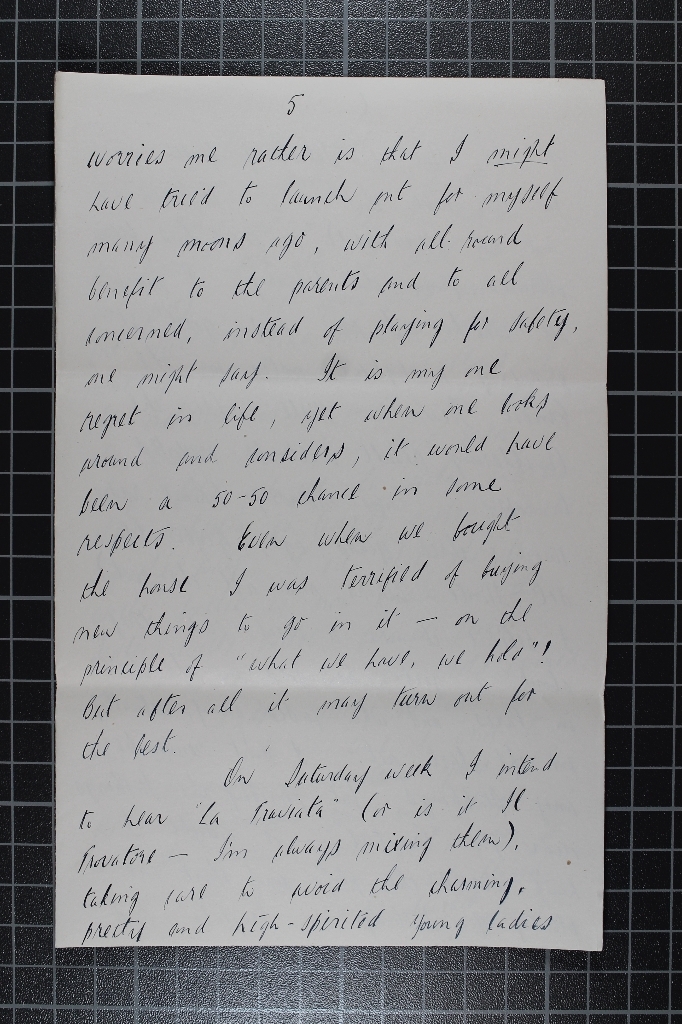 5
worries me rather is that I might
have tried to launch out for myself
many moons ago, with all-round
benefit to the parents and to all
concerned, instead of playing for safety,
one might say. It is my one
regret in life, yet when one looks
around and considers, it would have
been a 50-50 chance in some
respects. Even when we bought
the house I was terrified of buying
new things to go in it — on the
principle of "what we have, we hold"!
But after all it may turn out for
the best.
On Saturday week I intend
to hear "La Traviata" (or is it Il
Trovatore — I'm always mixing them),
taking care to avoid the charming,
pretty and high-spirited young ladies